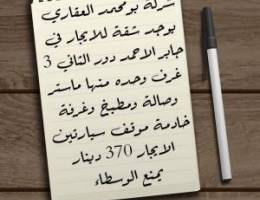 شركة بومحمد العقاري
يوجد شقة للايجار في
جابر الاحمد دور الثاني 3
غرف وحده منها ماستر
وصالة ومطبخ وغرفة
خادمة موقف سيارتين
الايجار 370 دينار
يمنع الوسطاء